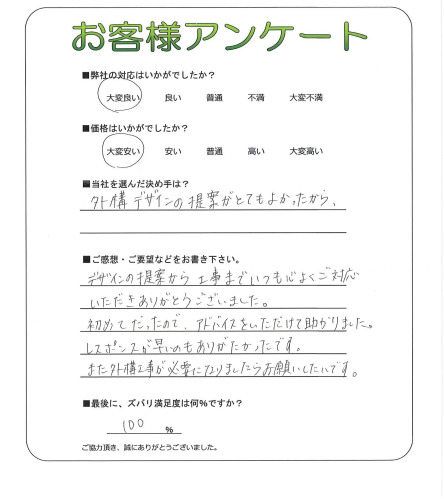 お客様アンケート
■弊社の対応はいかがでしたか？
大変良い 良い 普通 不満 大変不満
■価格はいかがでしたか？
大変安い 安い 普通 高い 大変高い
■当社を選んだ決め手は？
外構デザインの提案がとてもよかったから、
■ご感想・ご要望などをお書き下さい。
デザインの提案から工事までいつも心よくご対応
いただきありがとうございました。
初めてだったので、アドバイスをいただけて助かりました。
レスポンスが早いのもありがたかったです。
また外構工事が必要になりましたらお願いしたいです。
■最後に、ズバリ満足度は何%ですか？
100 %
ご協力頂き、誠にありがとうございました。